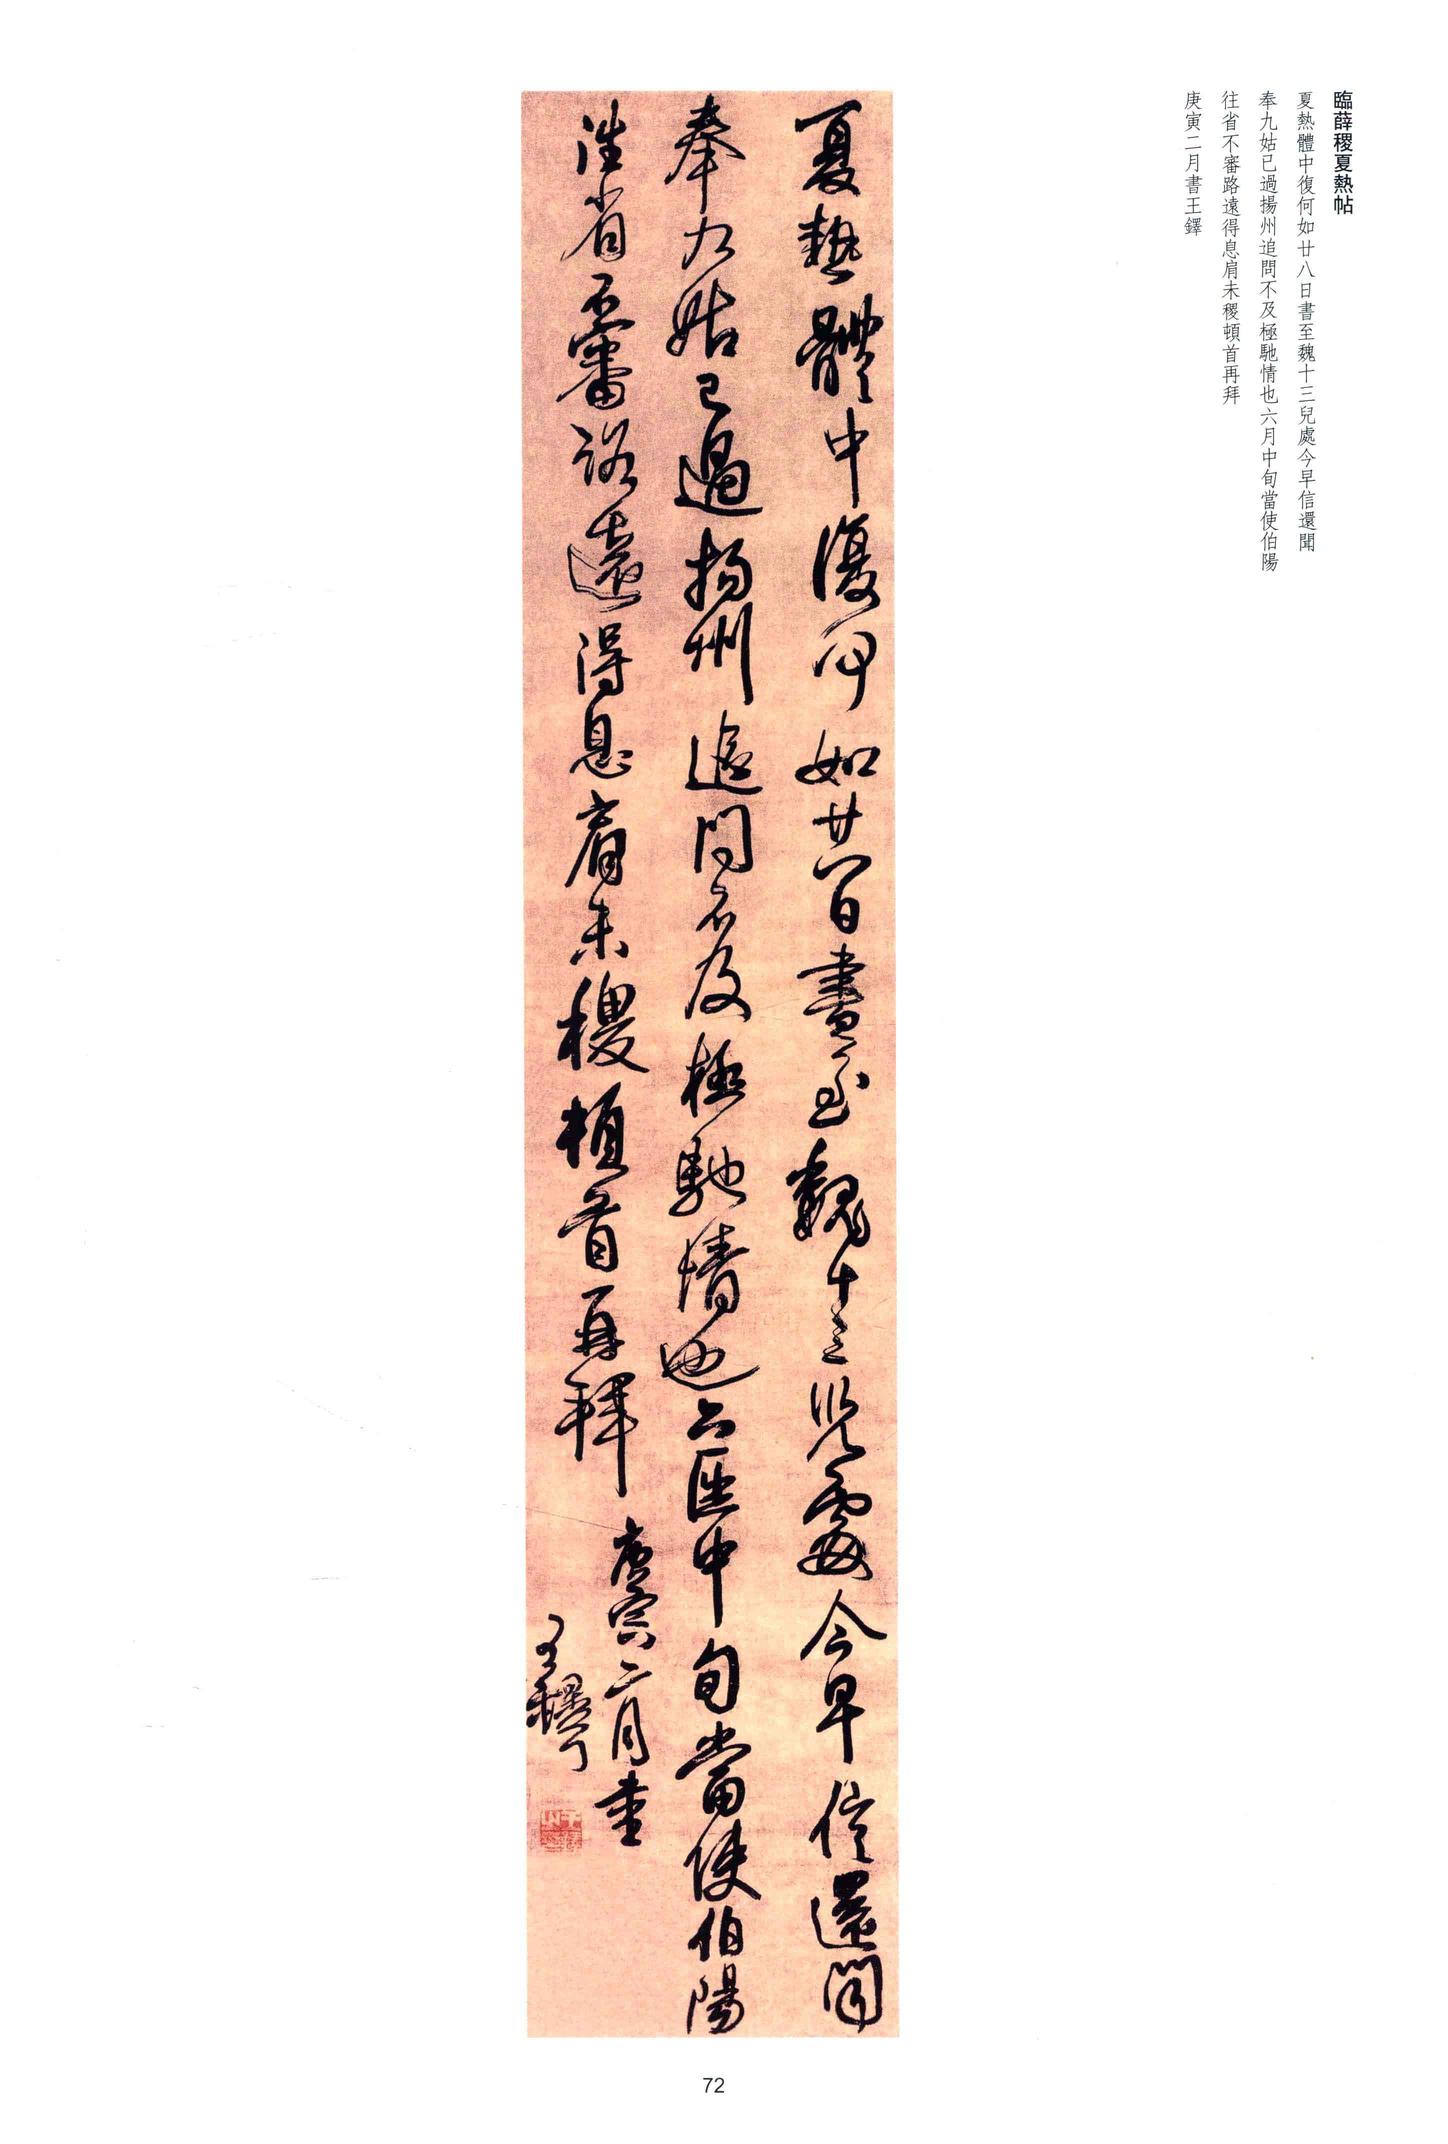 臨薛稷夏熱帖
夏熱體中復何如廿八日書至魏十三兒處今早信還聞
奉九姑已過揚州追問不及極馳情也六月中旬當使伯陽
往省不審路遠得息肩未稷頓首再拜
庚寅二月書王鐸
夏熱體中復何如廿八日書至魏十三兒處今早信還聞
奉九姑已過揚州追問不及極馳情也六匝中旬當使伯陽
往省不審路遠得息肩未稷頓首再拜
庚寅二月書
王鐸
72